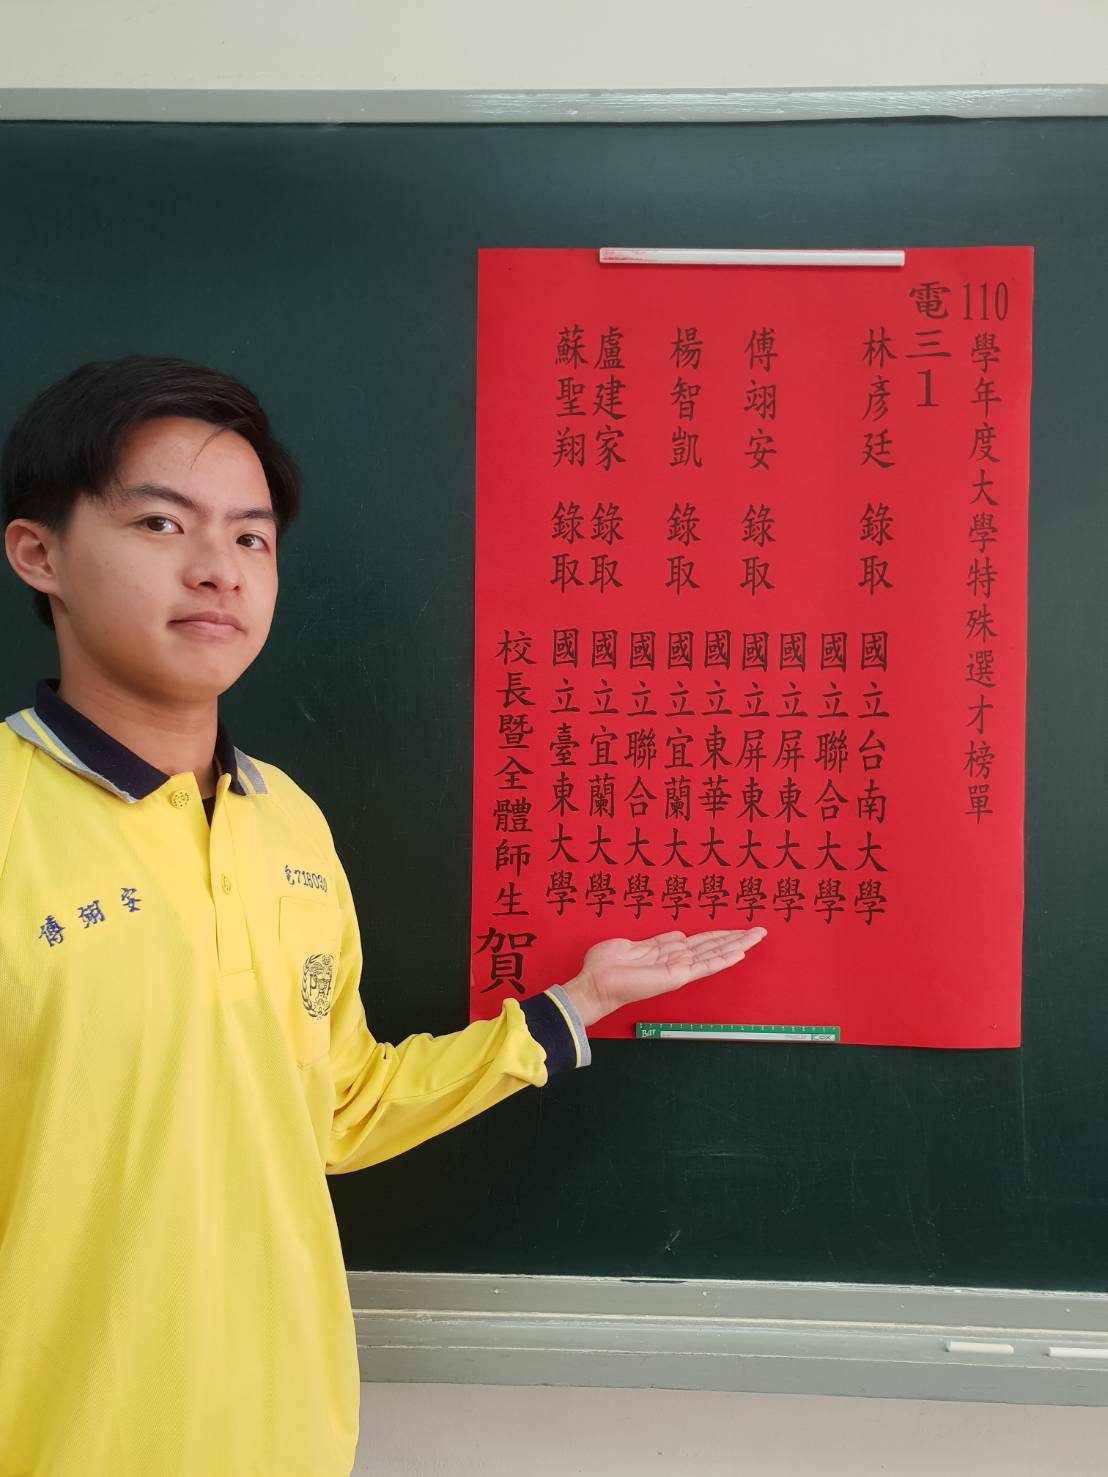 110學年度大學特殊選才榜單
電三1
林彥廷 錄取 國立台南大學
國立聯合大學
國立屏東大學
傅翊安 錄取 國立屏東大學
國立東華大學
楊智凱 錄取 國立宜蘭大學
國立聯合大學
盧建家 錄取 國立宜蘭大學
蘇聖翔 錄取 國立臺東大學
校長暨全體師生賀
傅翊安